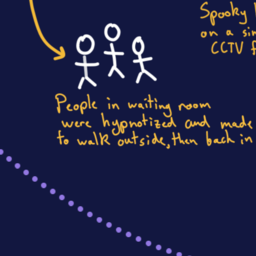 Spooky
on a
CCTV
People in waiting room
were hypnotized and made
to walk outside, then back in